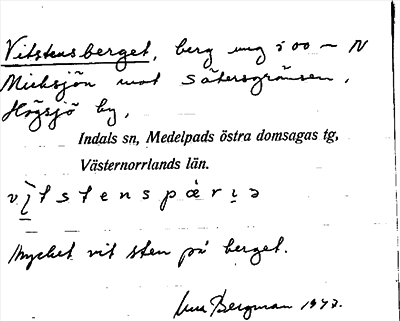 Vitstensberget, berg ung 500 m N
Micksjön mot sätersgränsen,
Högsjö by,
Indals sn, Medelpads östra domsagas tg,
Västernorrlands län.
Mycket vit sten på berget.
Bergman 1943.